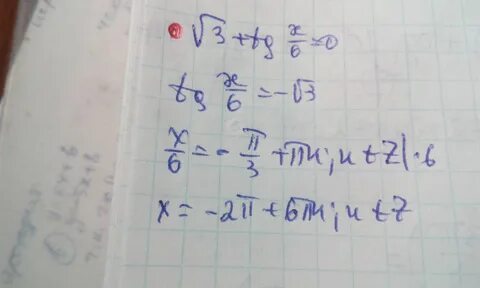 √3 + tg x/6 = 0
tg x/6 = -√3
x/6 = - π/3 + πn; n ∈ Z | · 6
x = -2π + 6πn; n ∈ Z